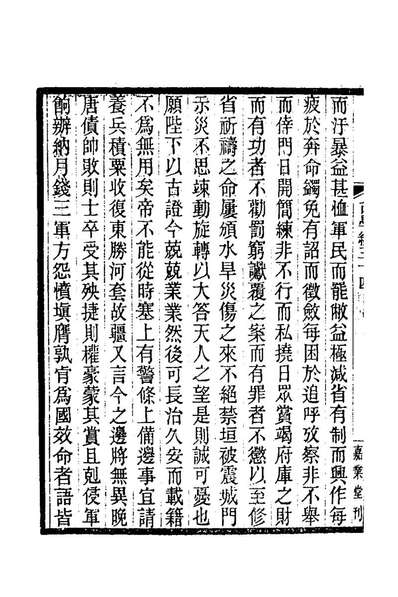 而汙暴益甚恤軍民而罷敝益極減省有制而興作每
疲於奔命蠲免有詔而徵斂每困於追呼攷察非不舉
而倖門日開簡練非不行而私撓日眾賞竭府庫之財
而有功者不勸罰窮讞覆之案而有罪者不懲以至修
省祈禱之命屢頒水旱災傷之來不絕禁垣被震城門
示災不思竦動旋轉以大答天人之望是則誠可憂也
願陛下以古證今兢兢業業然後可長治久安而載籍
不為無用矣帝不能從時塞上有警條上備邊事宜請
養兵積粟收復東勝河套故疆又言今之邊將無異晚
唐債帥敗則士卒受其殃捷則權豪蒙其賞且剋侵軍
餉辦納月錢三軍方怨憤塡膺孰肯為國效命者語皆
嘉業堂刊